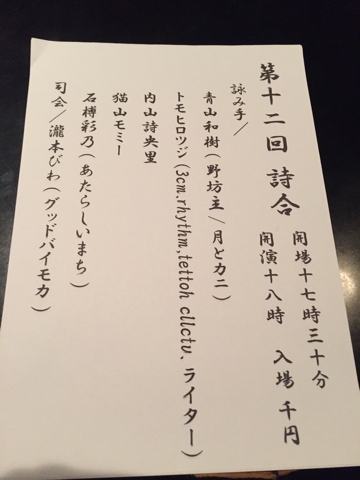 第十二回 詩合
開場十七時三十分
開演十八時 入場 千円
詠み手/
青山和樹(野坊主/月とカニ)
トモヒロツジ(3cm.rhythm,tettoh cllctv. ライター)
内山詩央里
猫山モミー
石榑彩乃(あたらしいまち)
司会/瀧本びわ(グッドバイモカ)